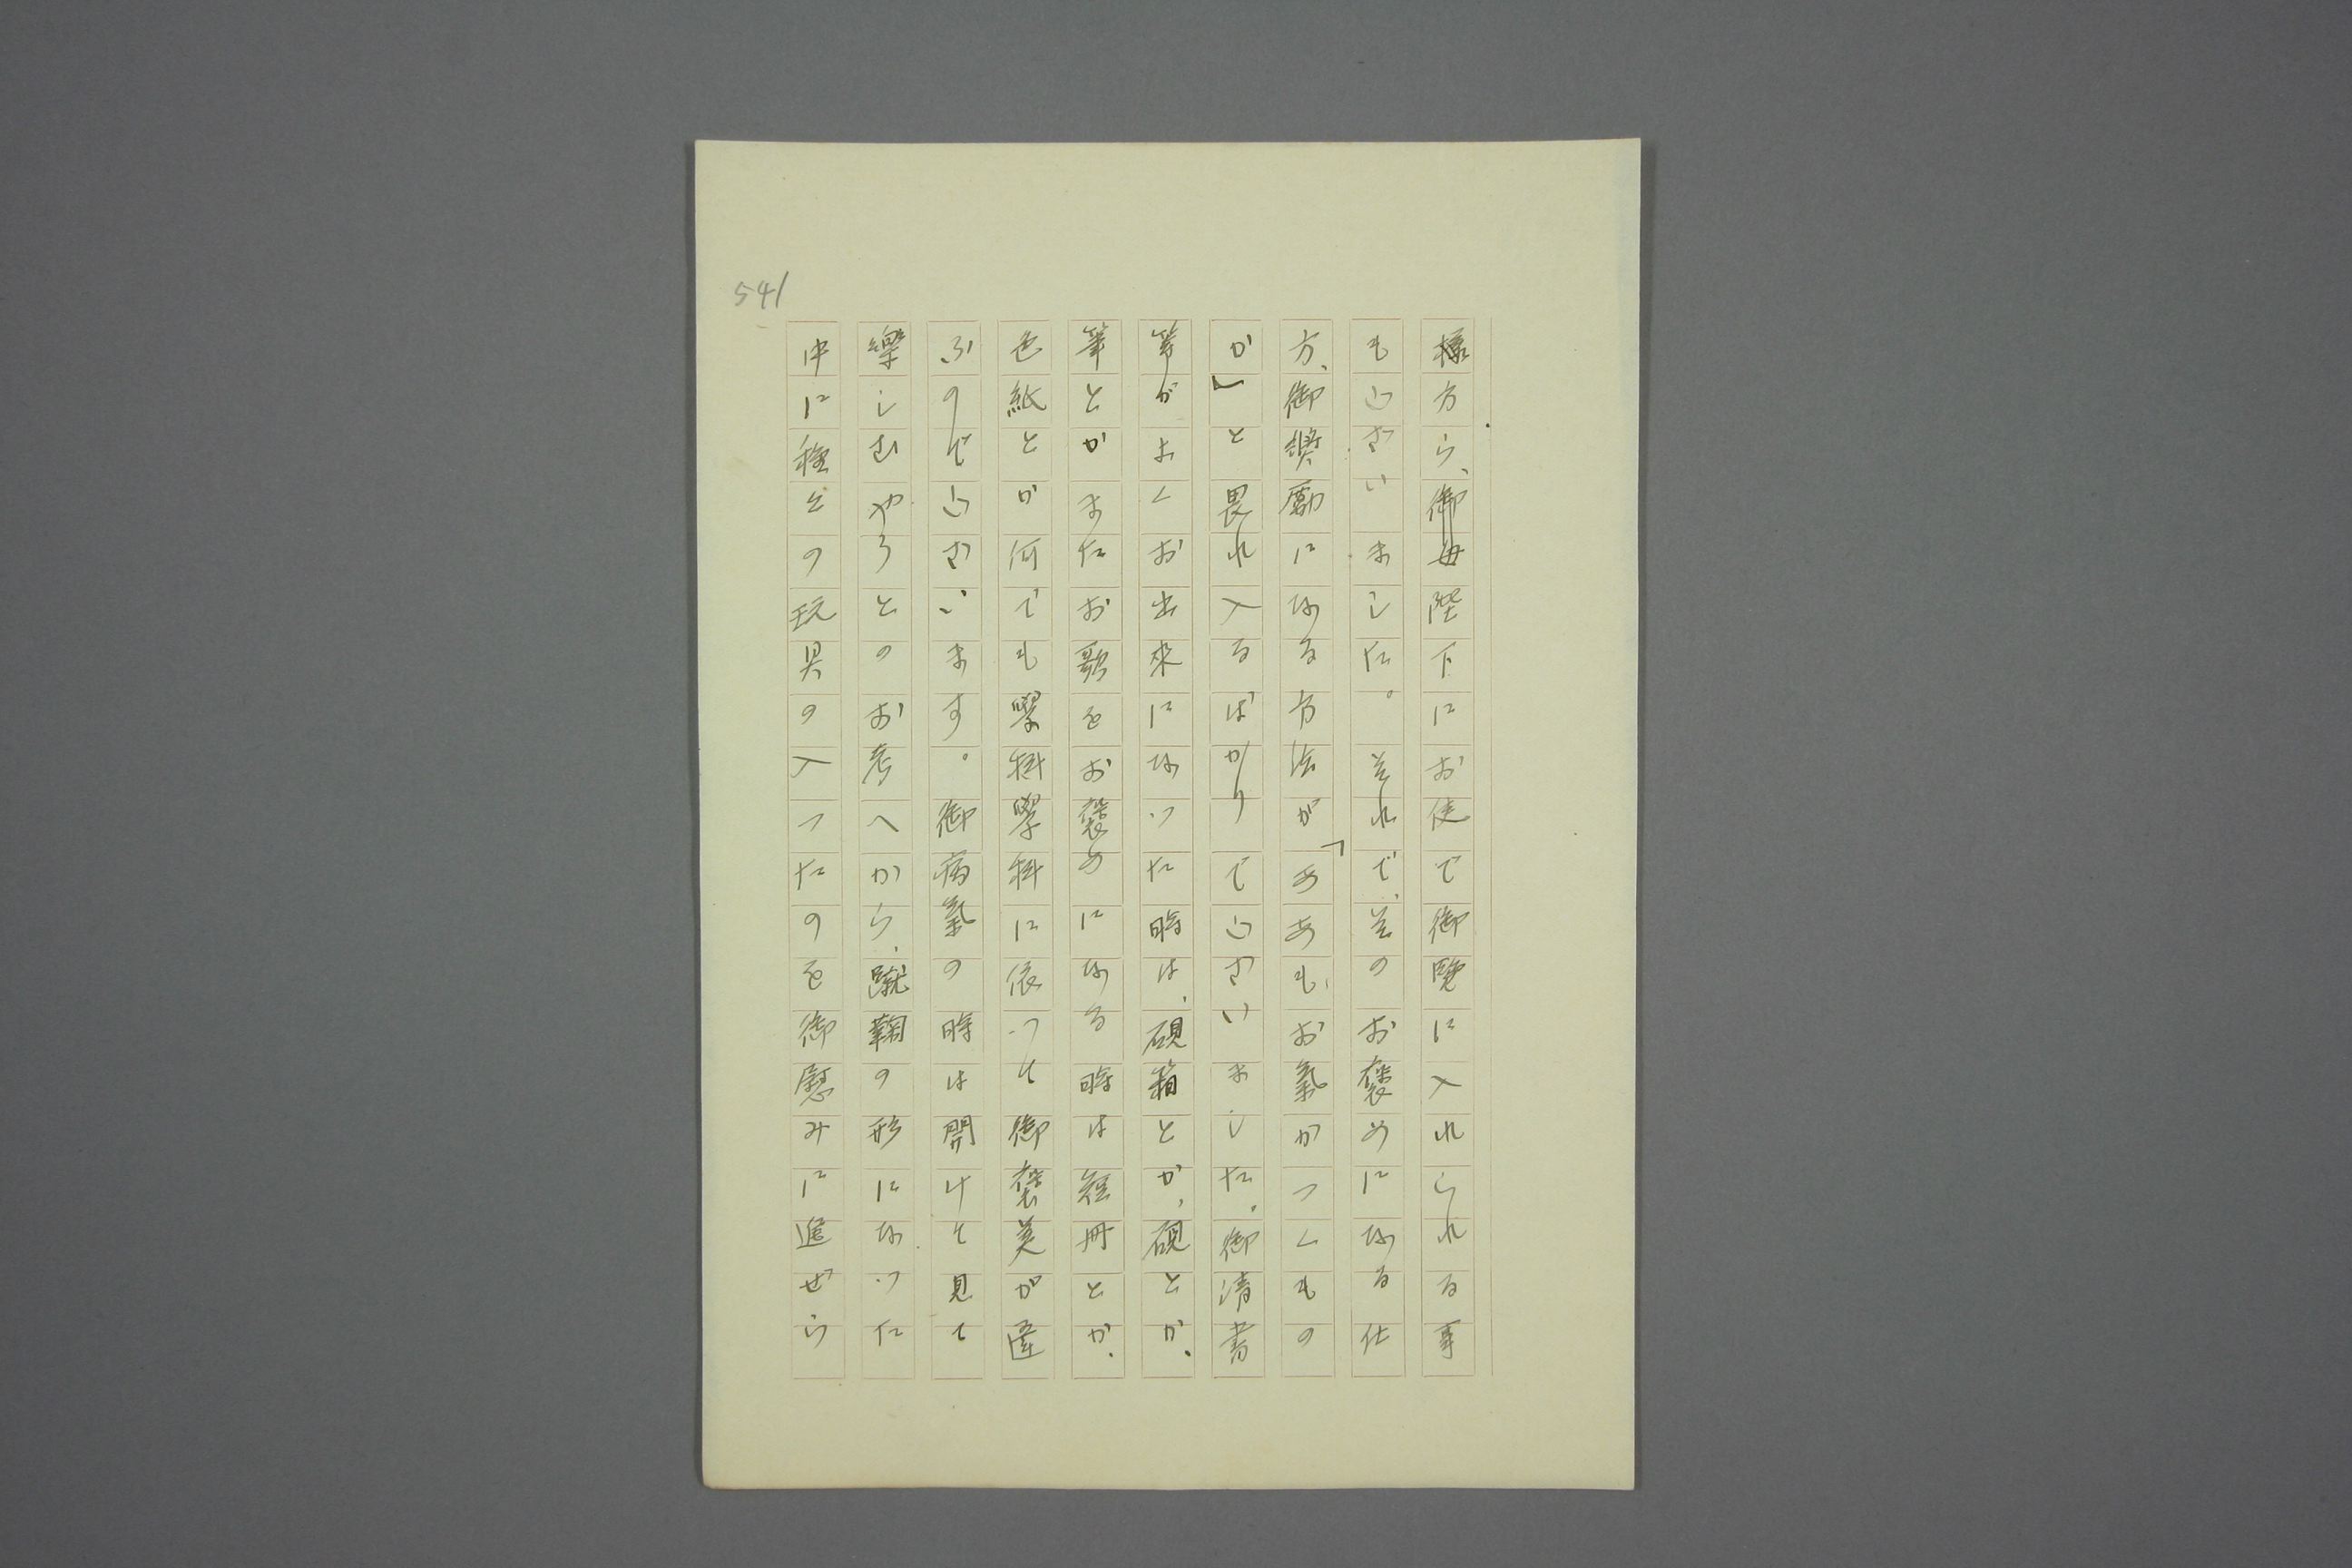 541
様方ら、御母陛下にお使で御覽に入れられる事
もございました。それで、そのお褒めになる仕
方、御奬勵になる方法が「ああも、お氣がつくもの
か」と畏れ入るばかりでございました。御清書
等がよくお出來になつた時は、硯箱とか、硯とか、
筆とかまたお歌をお褒めになる時は短冊とか、
色紙とか何でも學科學科に依つて御褒美が違
ふのでございます。御病氣の時は開けて見て
樂しむやうとのお考へから、蹴鞠の形になつた
中に種々の玩具の入つたのを御慰みに進ぜら